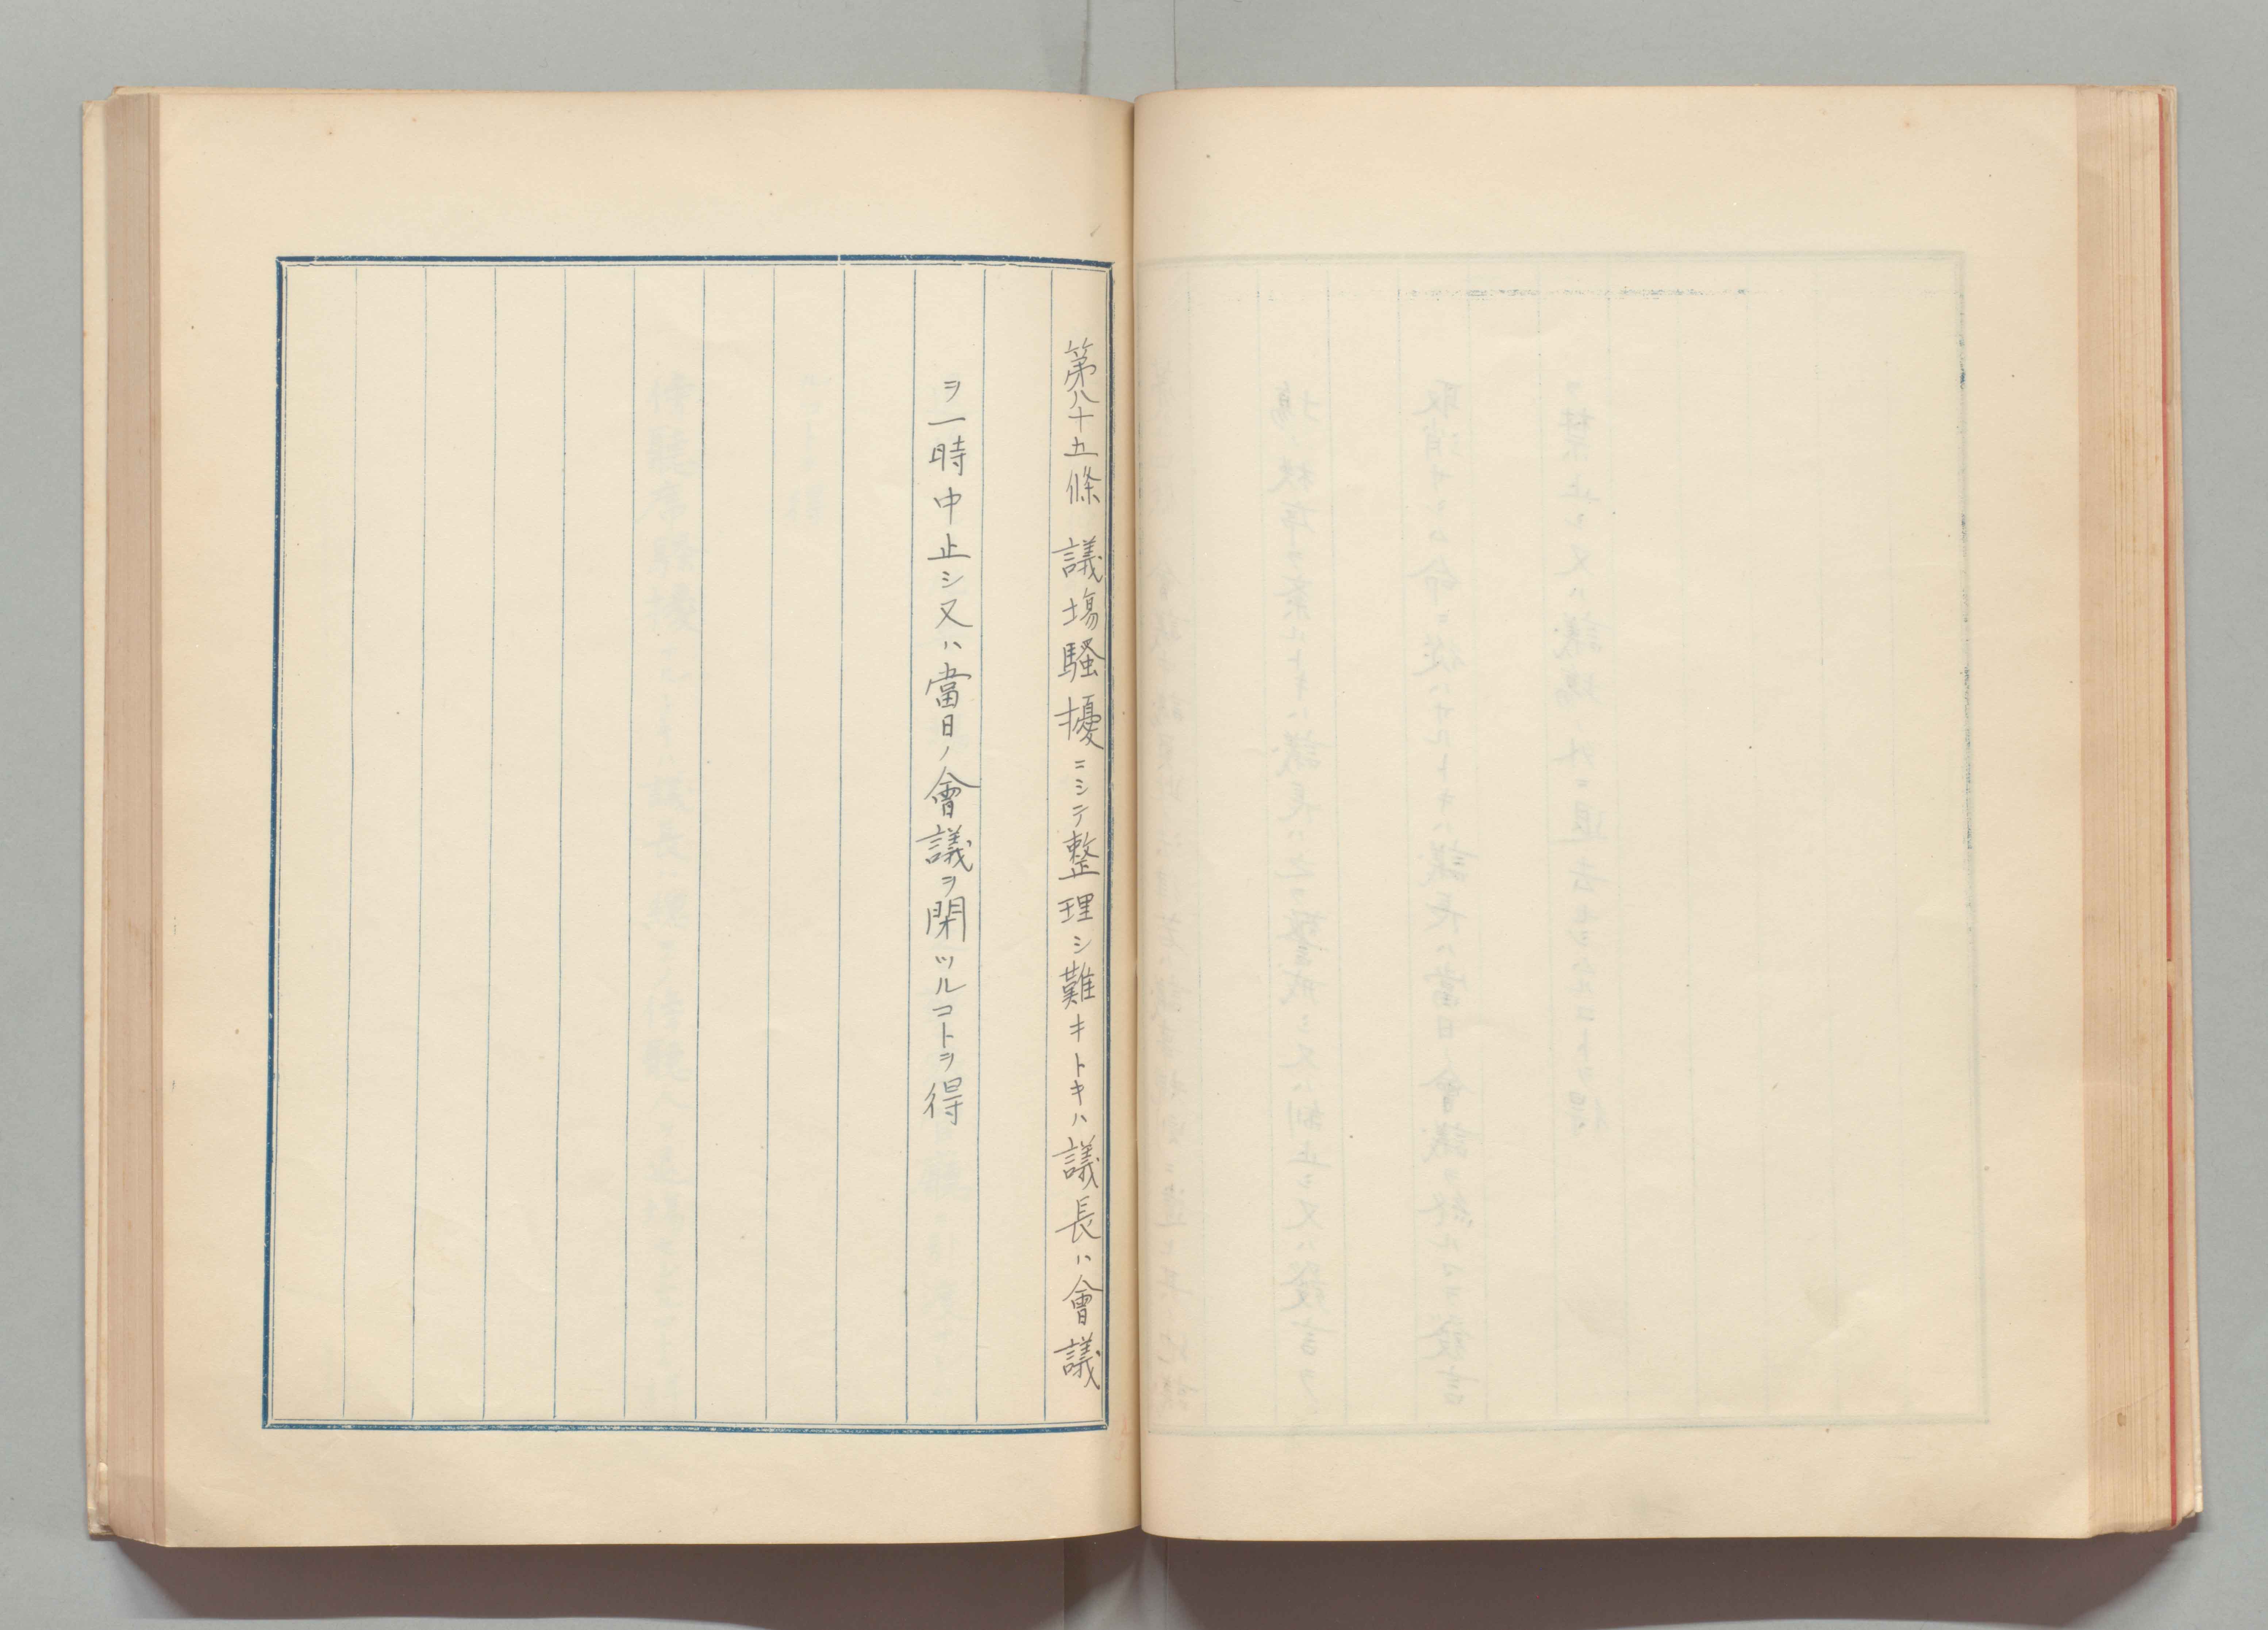 第八十五條　議場騷擾ニシテ整理シ難キトキハ議長ハ會議
ヲ一時中止シ又ハ當日ノ會議ヲ閉ツルコトヲ得